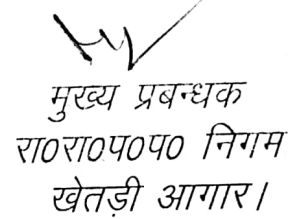 मुख्य प्रबन्धक
रा०रा०प०प० निगम
खेतड़ी आगार।